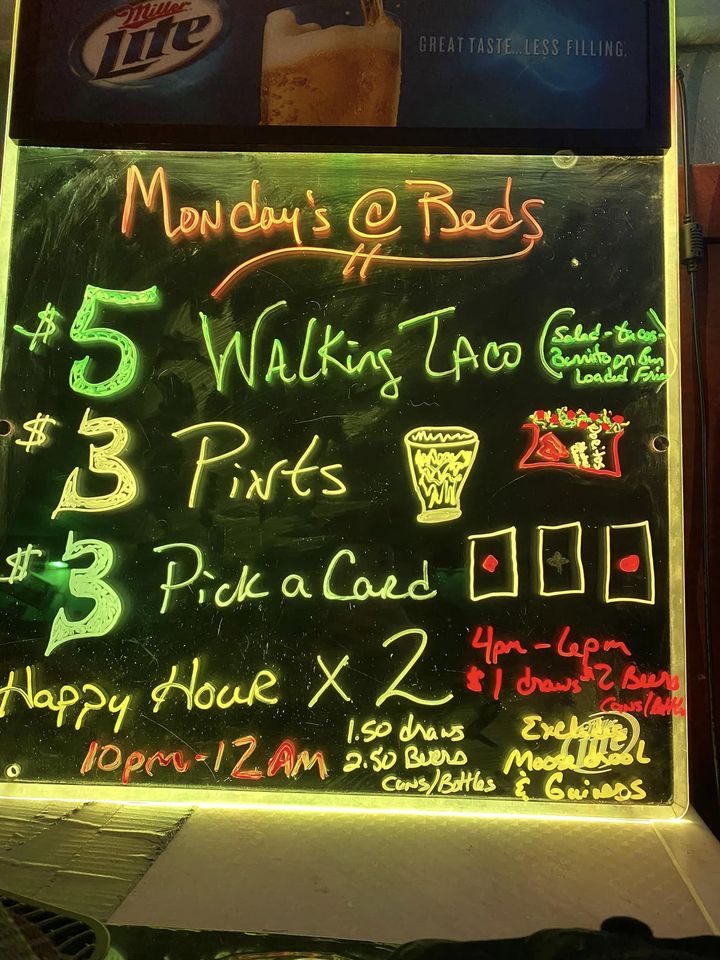 Miller
Lite
GREAT TASTE...LESS FILLING.
Monday's @ Beds
$5 Walking Taco (Salad - tacos -
Burrito on Bun
Loaded Fries)
$3 Pints
$3 Pick a Card
Happy Hour X 2
4pm - 6pm
$1 draws $2 Beers
Cans/Bottles
10pm - 12AM
1.50 draws
2.50 Beers
Cans/Bottles
Excludes
& Guiness
Lite